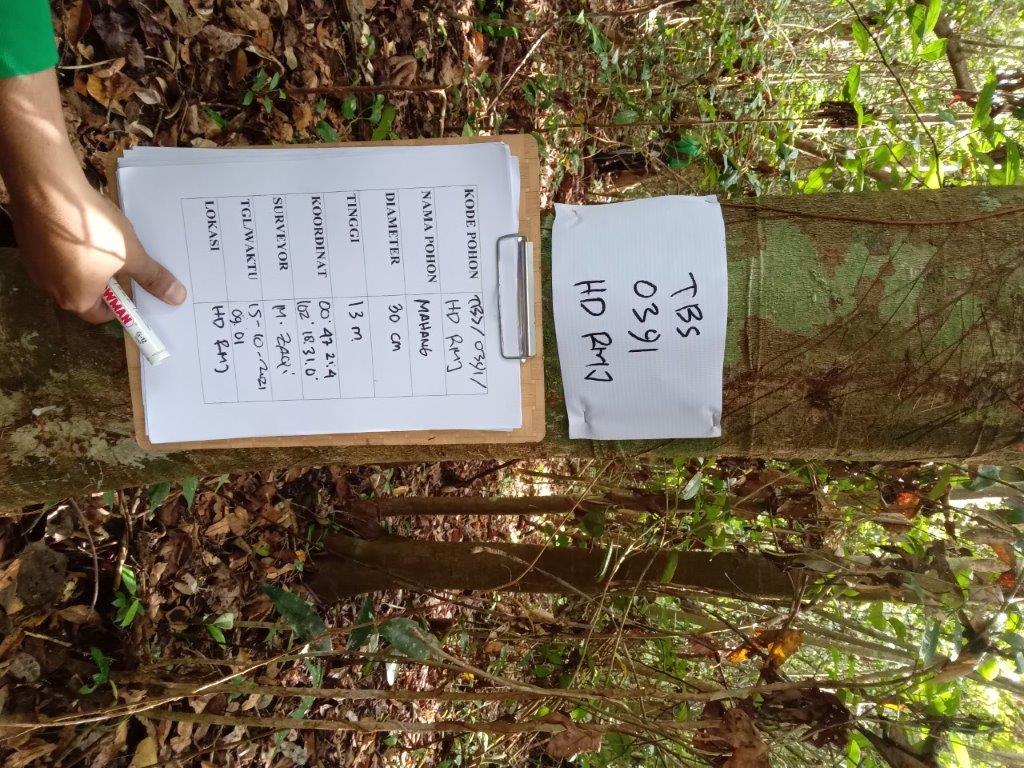 TBS
0391
HD RMJ
KODE POHON TBS/0391/
HD RMJ
NAMA POHON MAHANG
DIAMETER 30 cm
TINGGI 13 m
KOORDINAT 00° 47 21.4
102° 18.31.0"
SURVEYOR M. ZAQi
TGL/WAKTU 15-10-2021
09.01
LOKASI HD RMJ
WMAN G-12